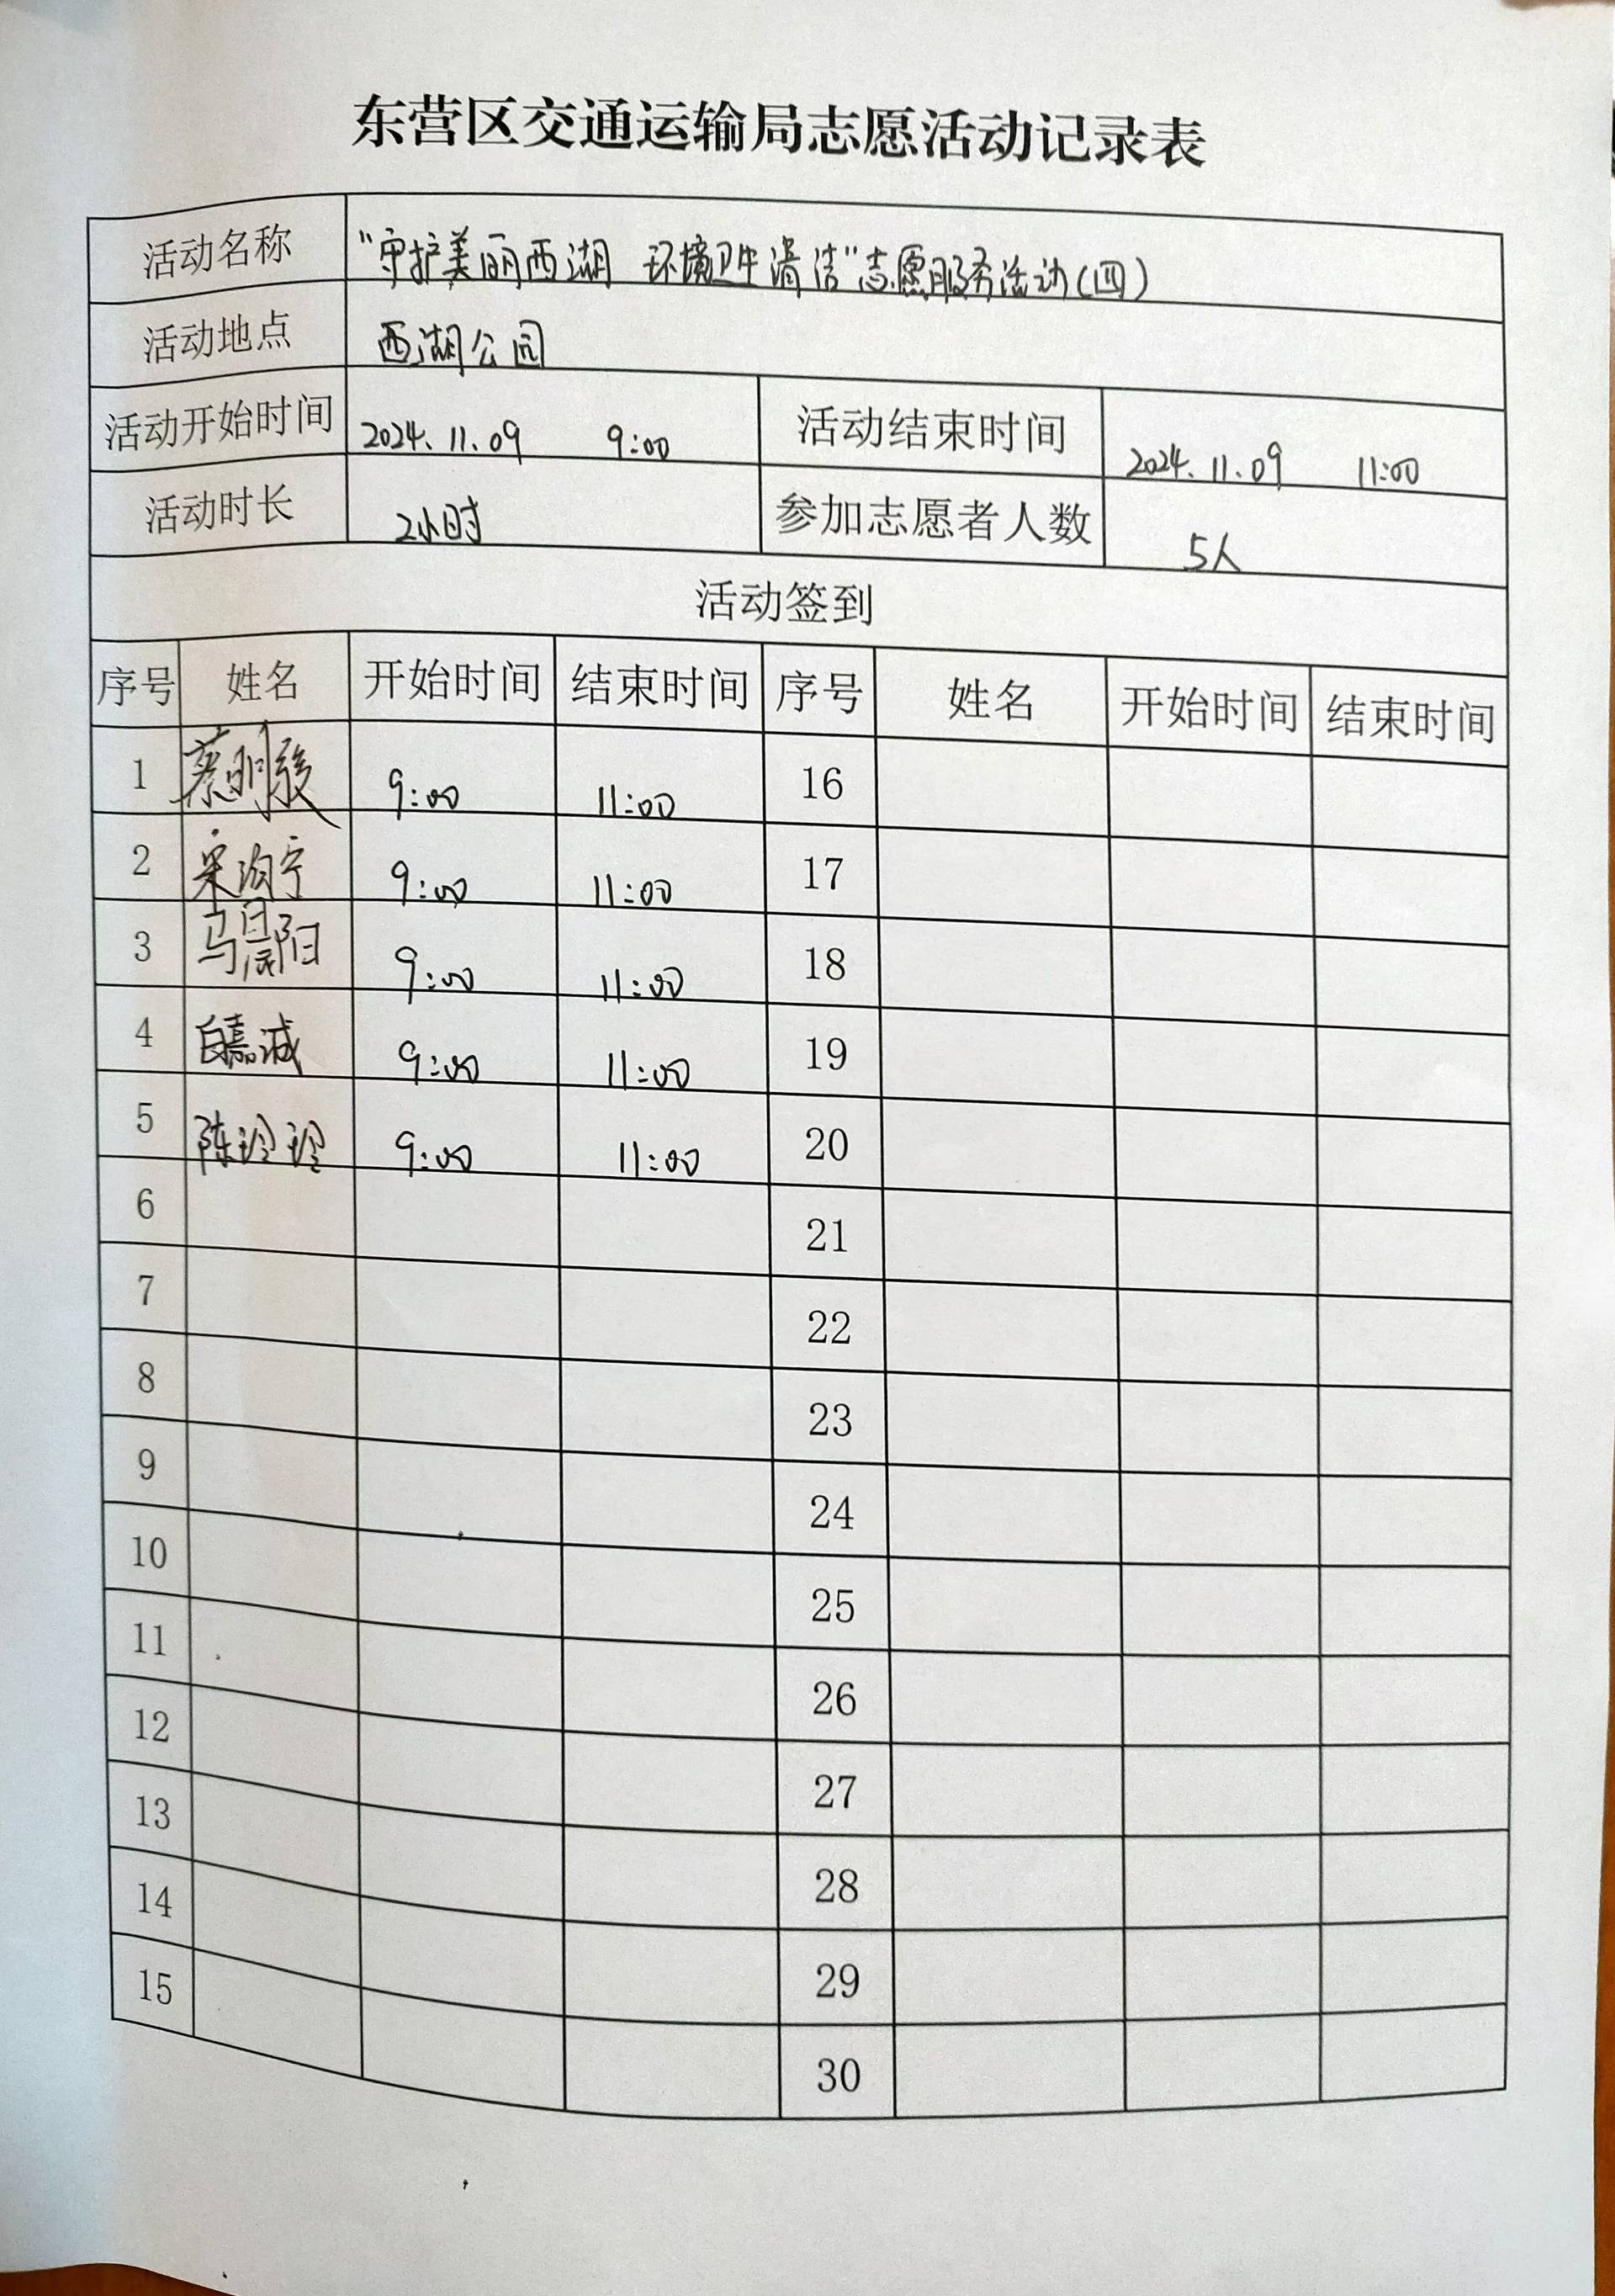 东营区交通运输局志愿活动记录表
活动名称 “守护美丽西湖 环境卫生清洁”志愿服务活动(四)
活动地点 西湖公园
活动开始时间 2024.11.09 9:00 活动结束时间 2024.11.09 11:00
活动时长 2小时 参加志愿者人数 5人
活动签到
序号 姓名 开始时间 结束时间 序号 姓名 开始时间 结束时间
1 蔡明骏 9:00 11:00 16
2 宋沟宁 9:00 11:00 17
3 马晨阳 9:00 11:00 18
4 白嘉诚 9:00 11:00 19
5 陈玲玲 9:00 11:00 20
6 21
7 22
8 23
9 24
10 25
11 26
12 27
13 28
14 29
15 30